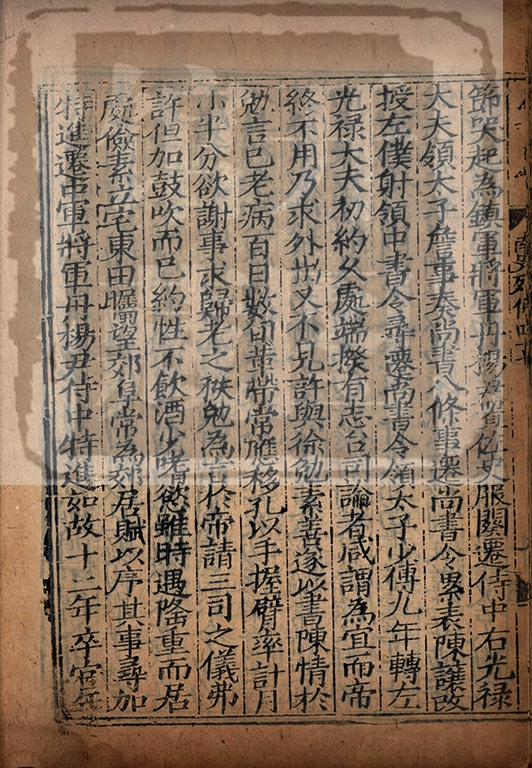 節哭起為鎮軍將軍丹楊尹置佐史服闋遷侍中右光祿
大夫領太子詹事奏尚書八條事遷尚書令累表陳讓改
授左僕射領中書令尋遷尚書令領太子少傅九年轉左
光祿大夫初約久處端揆有志台司論者咸謂為宜而帝
終不用乃求外出又不見許與徐勉素善遂以書陳情於
勉言已老病百日數旬革帶常應移孔以手握臂率計月
小半分欲謝事求歸老之秩勉為言於帝請三司之儀弗
許但加鼓吹而已約性不飲酒少嗜慾雖時遇隆重而居
處儉素立宅東田矚望郊阜常為郊居賦以序其事尋加
特進遷中軍將軍丹楊尹侍中特進如故十二年卒官年